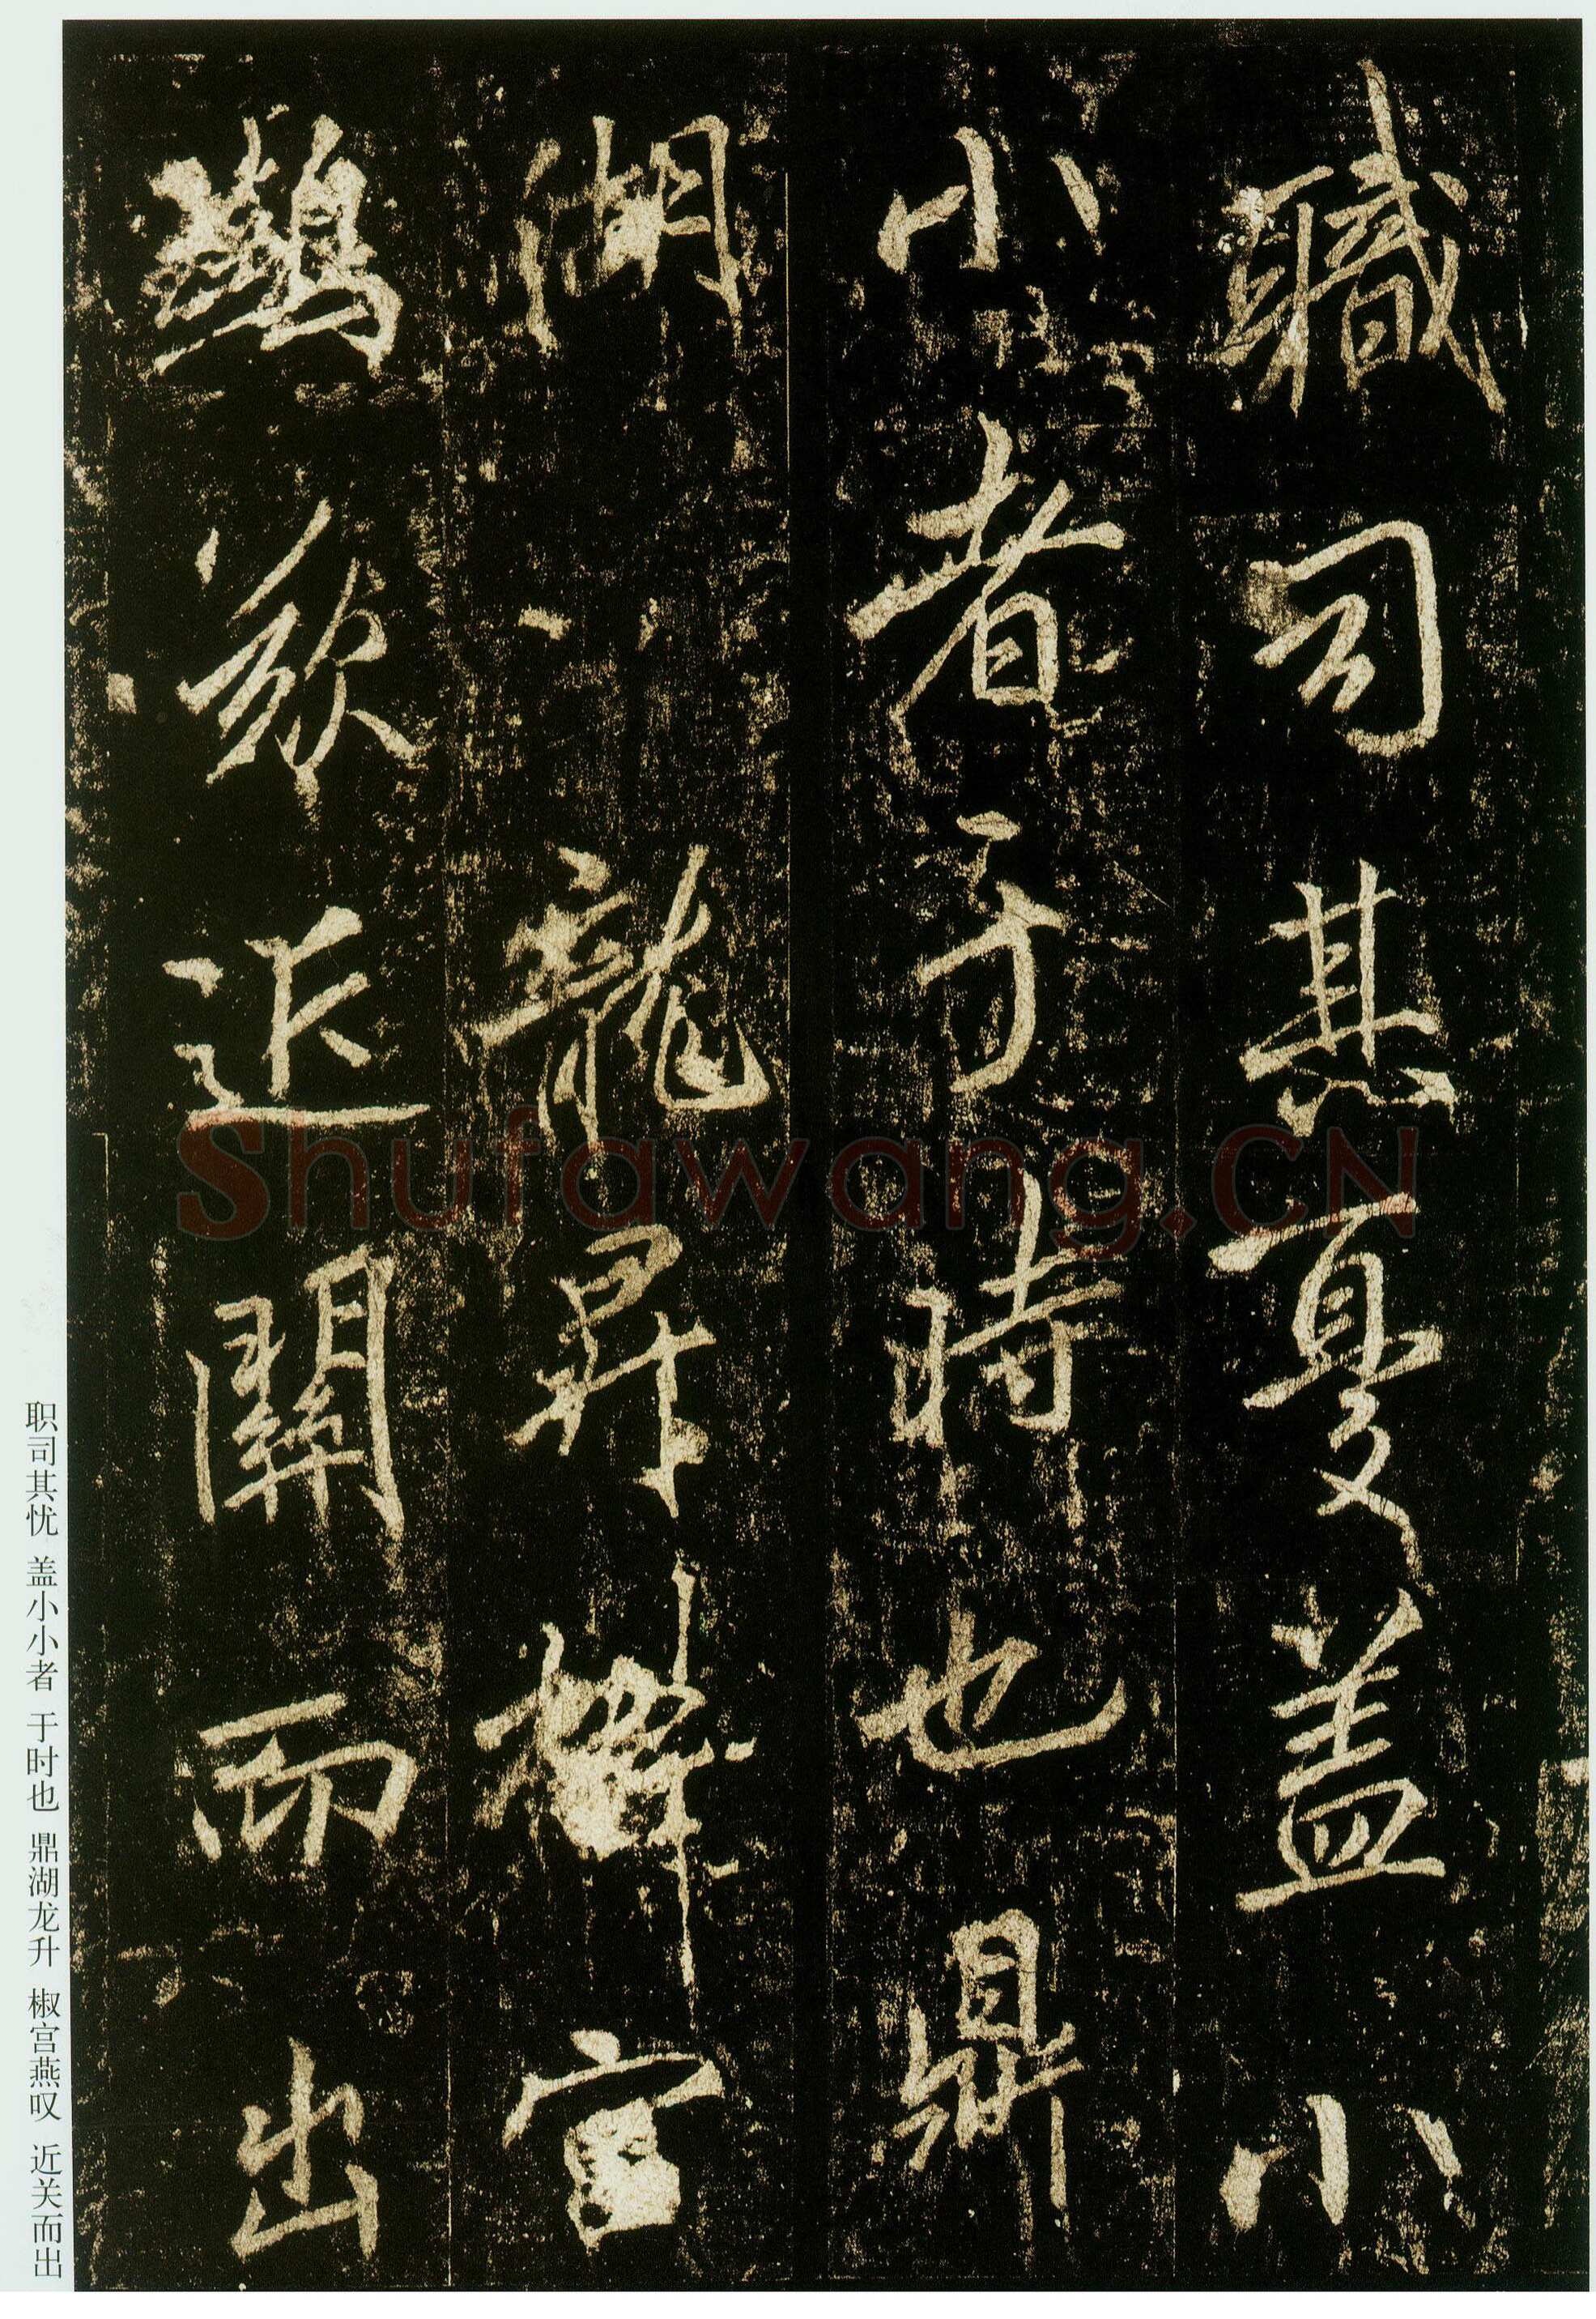 職司其憂蓋小
小者于時也鼎
湖龍昇宮
鷰歎近關而出
职司其忧 盖小小者 于时也 鼎湖龙升 椒宫燕叹 近关而出
Shufawang.CN